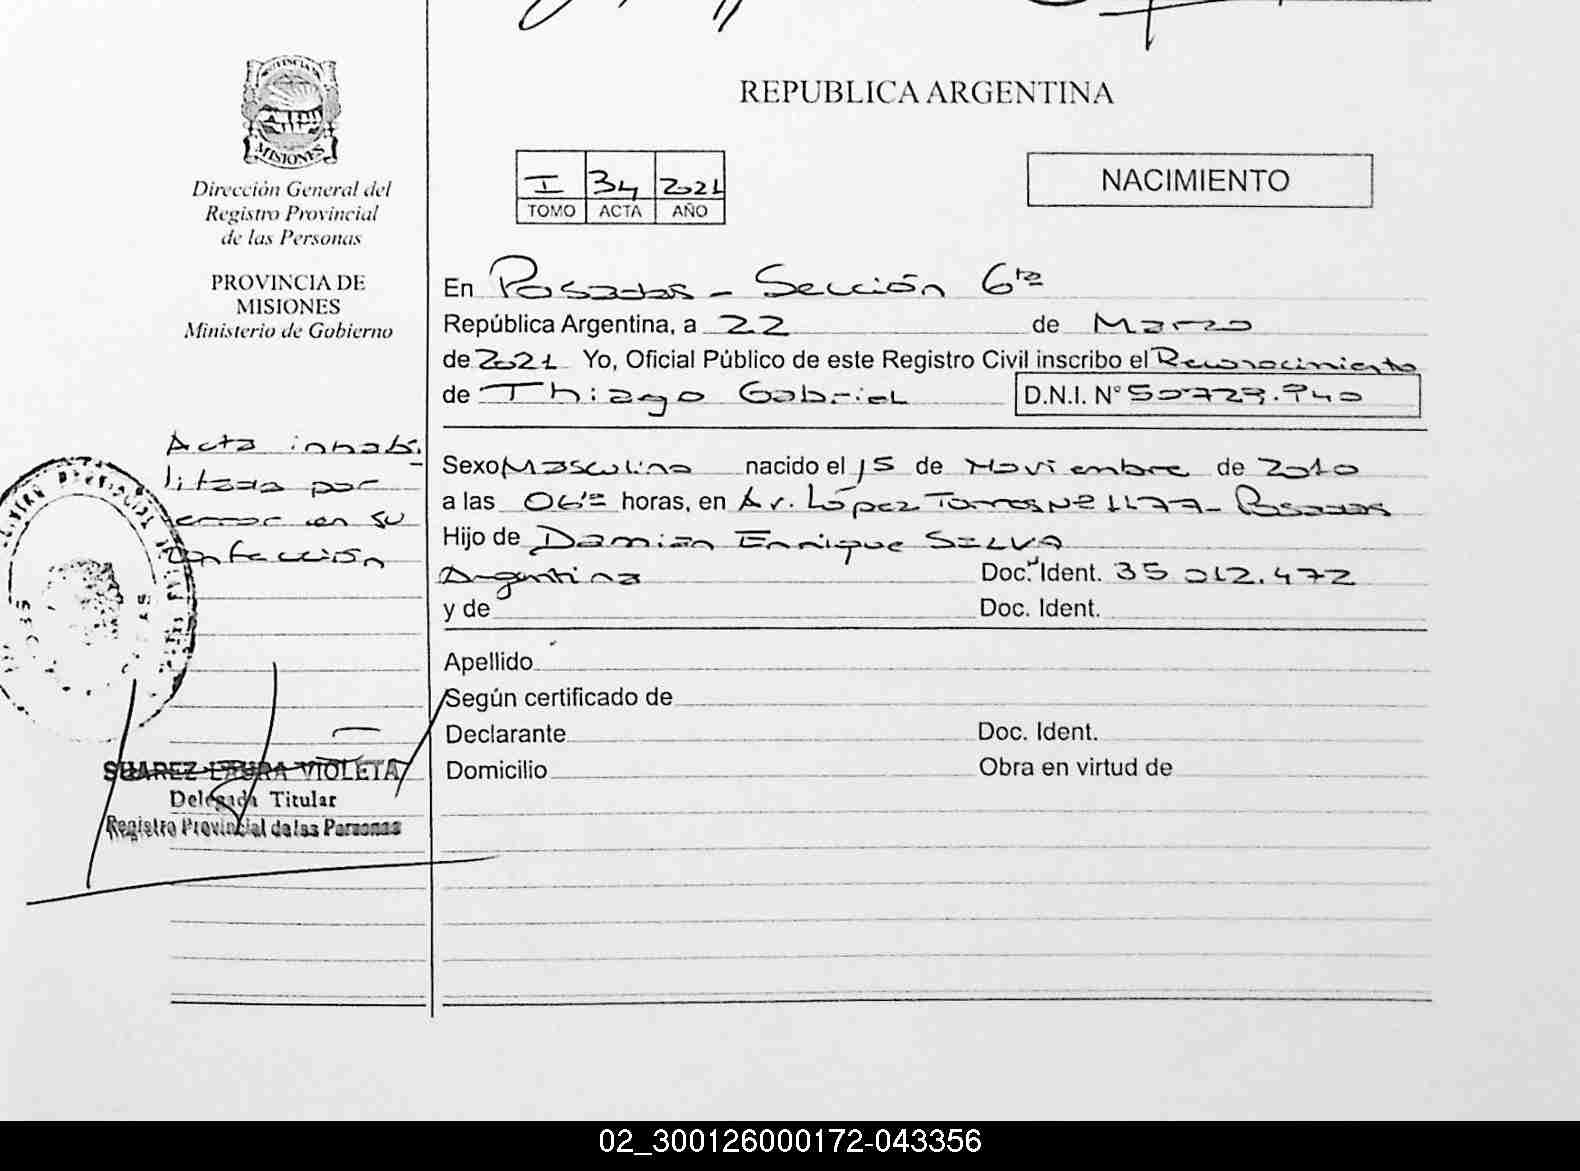 PROVINCIA DE
MISIONES
Dirección General del
Registro Provincial
de las Personas
PROVINCIA DE
MISIONES
Ministerio de Gobierno
Acta inhabi
litada por
error en su
confección
SUAREZ LAURA VIOLETA
Delegada Titular
Registro Provincial de las Personas
REPUBLICA ARGENTINA
I 34 2021
TOMO ACTA AÑO
NACIMIENTO
En Posadas - Sección 6ta
República Argentina, a 22 de Marzo
de 2021 Yo, Oficial Público de este Registro Civil inscribo el Reconocimiento
de Thiago Gabriel D.N.I. N° 50729.940
Sexo Masculino nacido el 15 de Noviembre de 2010
a las 06 horas, en Av. López Torres Nº 1177- Posadas
Hijo de Damián Enrique SILVA
Argentina Doc. Ident. 35.012.472
y de Doc. Ident.
Apellido
Según certificado de
Declarante Doc. Ident.
Domicilio Obra en virtud de
02_300126000172-043356